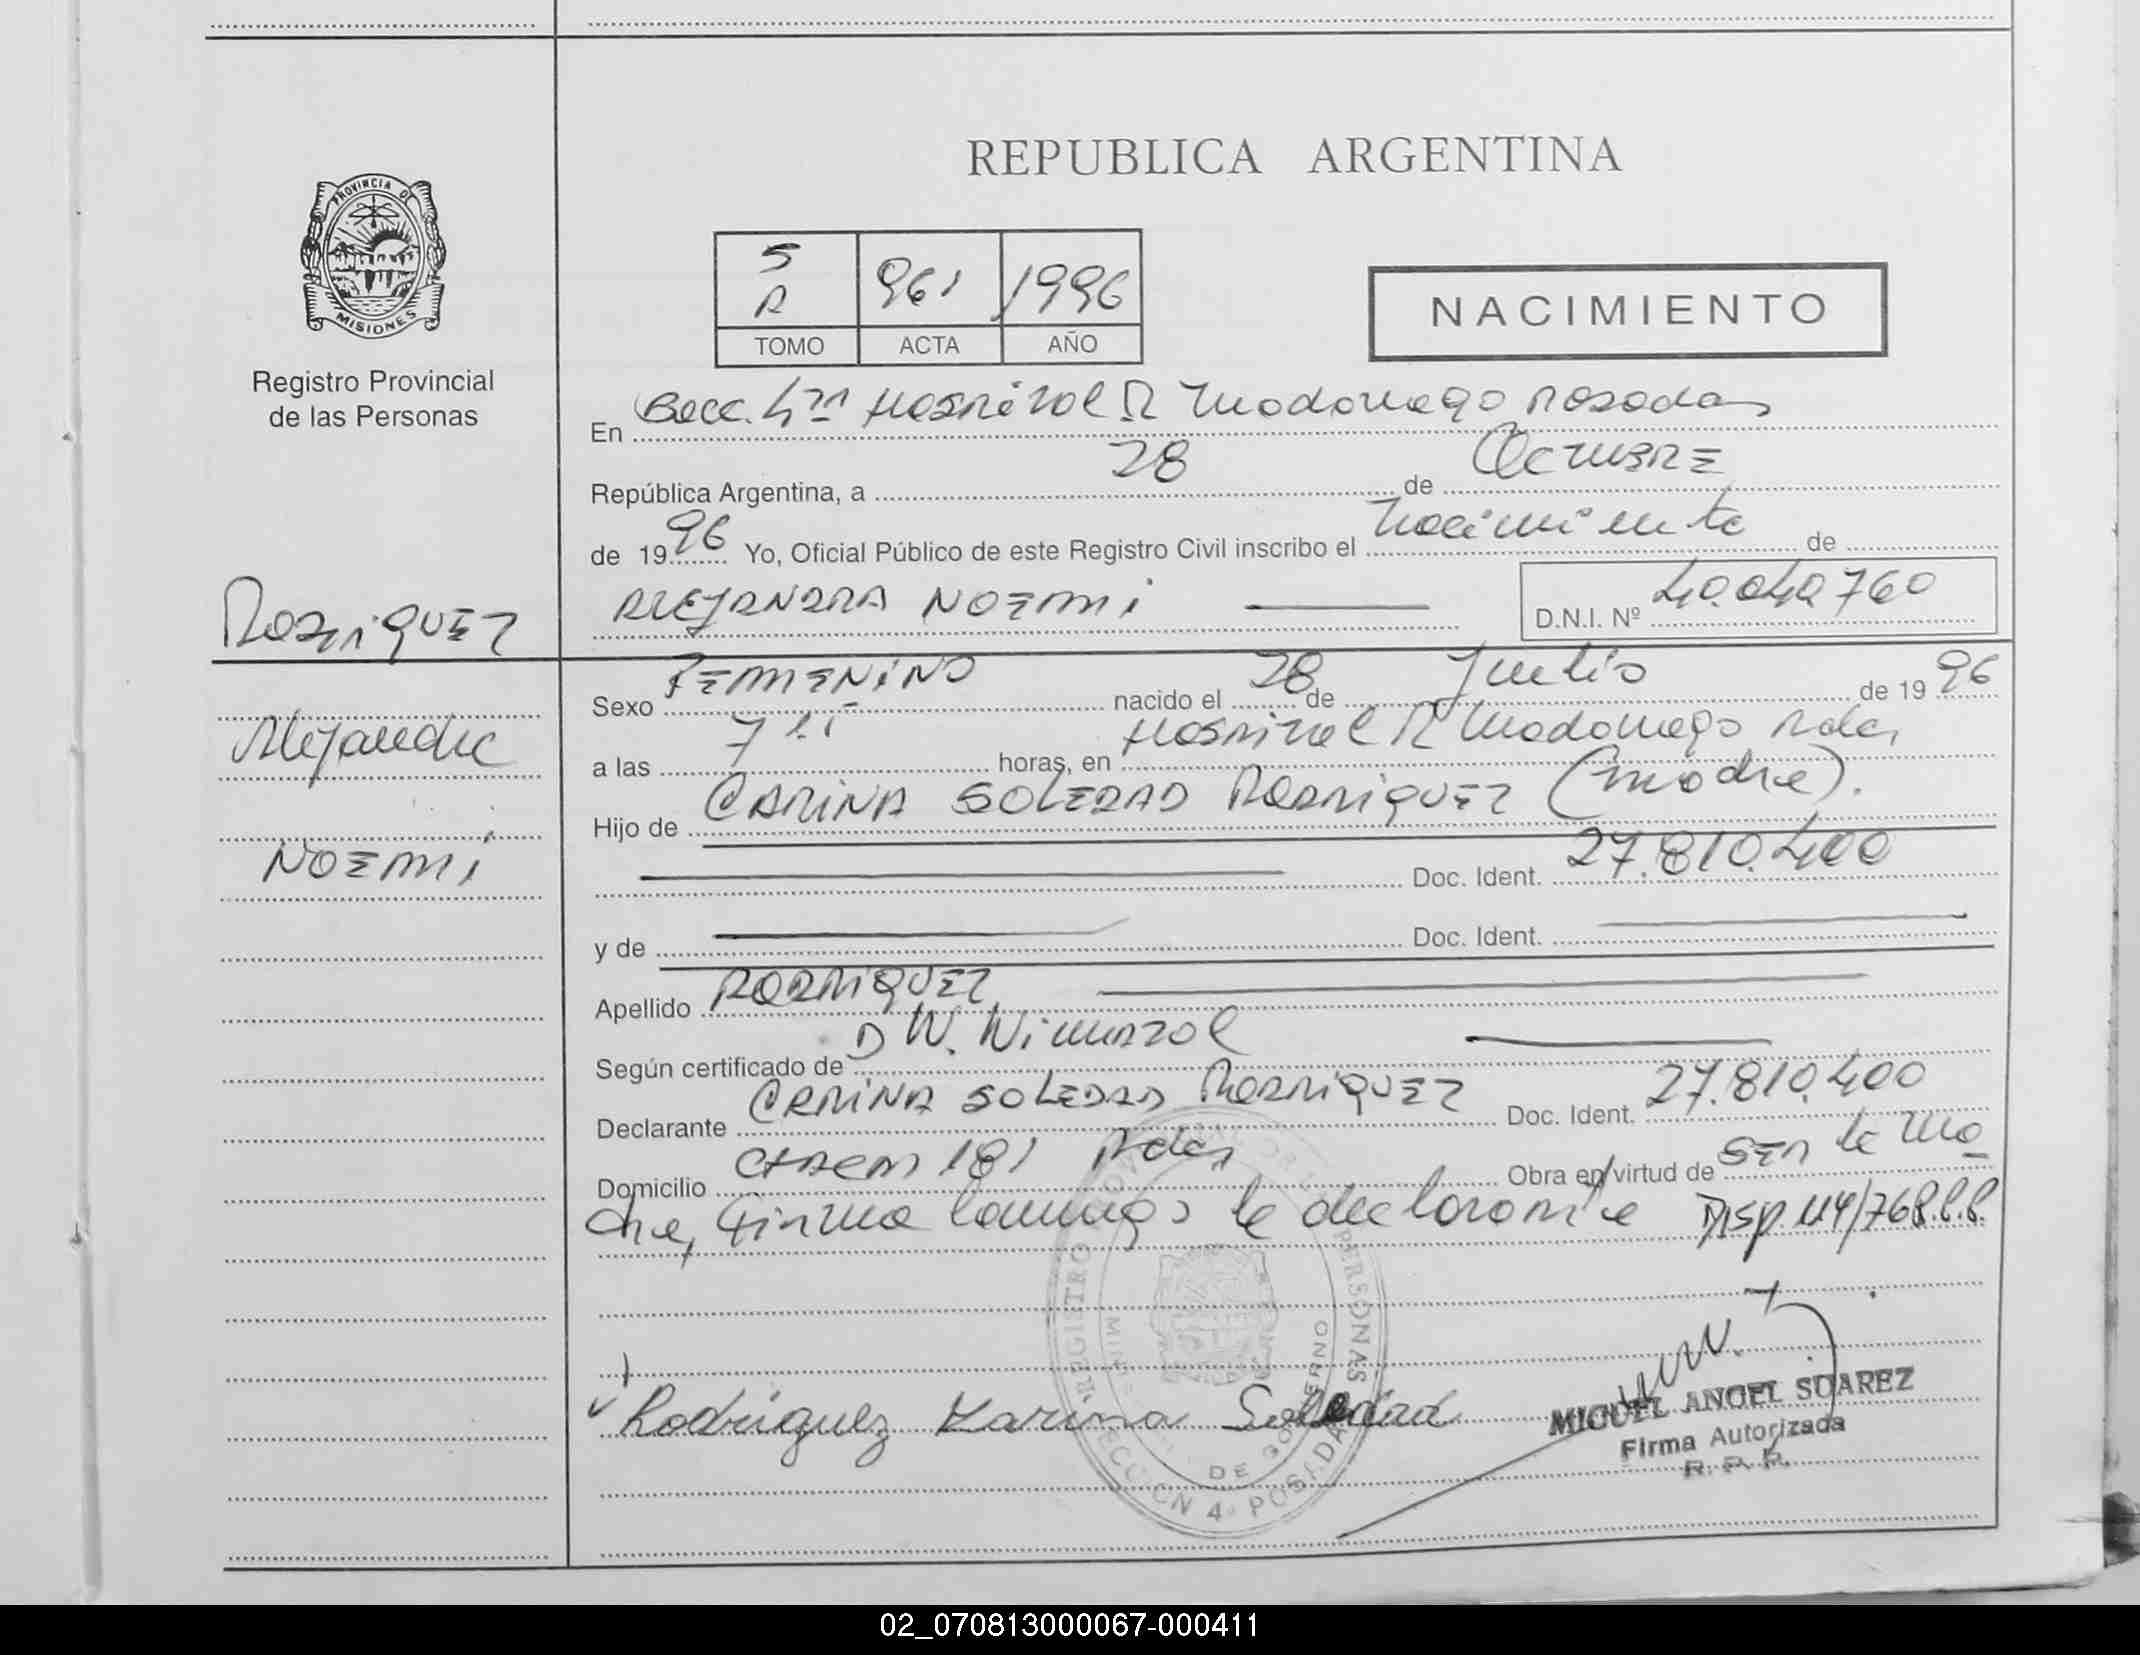 REPUBLICA ARGENTINA
PROVINCIA DE
MISIONES
Registro Provincial
de las Personas
5 R 961 1996
TOMO ACTA AÑO
NACIMIENTO
En Secc. 4ta Hospital R Madariaga Posadas
República Argentina, a 28 de OCTUBRE
de 1996 Yo, Oficial Público de este Registro Civil inscribo el Nacimiento de
ALEJANDRA NOEMI D.N.I. Nº 40.040760
RODRIGUEZ
Alejandra
NOEMI
Sexo FEMENINO nacido el 28 de Julio de 1996
a las 7 horas, en Hospital R Madariaga Pdas,
Hijo de CARINA SOLEDAD RODRIGUEZ (madre).
Doc. Ident. 27.810.400
y de Doc. Ident.
Apellido RODRIGUEZ
Según certificado de D W.
Declarante CARINA SOLEDAD RODRIGUEZ Doc. Ident. 27.810.400
Domicilio 181 Pdas Obra en virtud de SER la ma
dre, Firma conmigo la declarante Disp 114/76
Rodriguez Karina Soledad
REGISTRO PERSONAS
DE GOBIERNO
SECCION 4ª POSADAS
MIGUEL ANGEL SUAREZ
Firma Autorizada
R. P. P.
02_070813000067-000411